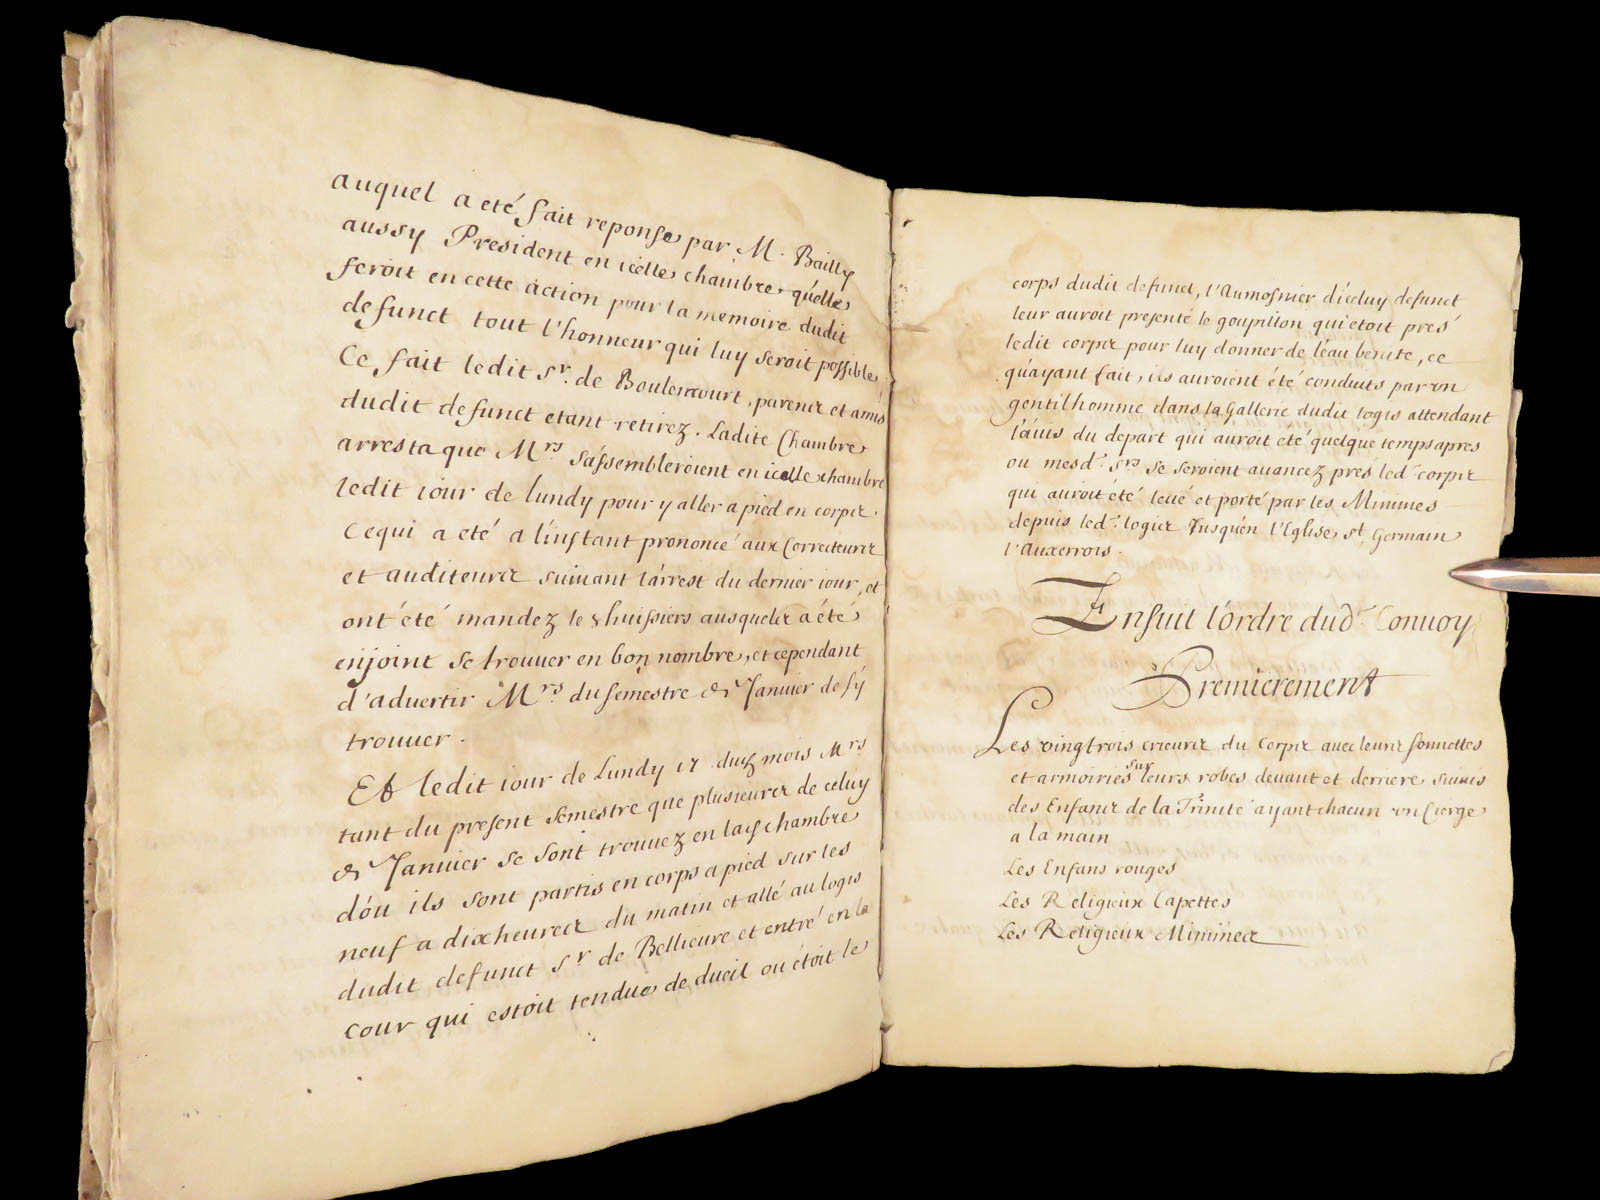 auquel a eté fait reponse par M. Bailly
aussy President en icelle chambre quelle
feroit en cette action pour la memoire dudit
defunct tout l'honneur qui luy seroit possible
Ce fait ledit Sr. de Boulencourt, parens et amis
dudit defunct etant retirez. Ladite Chambre
arresta que Mrs. s'assembleroient en icelle chambre
ledit iour de lundy pour y aller a pied en corps.
Ce qui a eté a l'instant prononcé aux Correcteurs
et auditeurs suiuant l'arrest du dernier iour, et
ont été mandez les huissiers ausquels a été
enjoint se trouuer en bon nombre, et cependant
d'aduertir Mrs. du semestre de Januier de s'y
trouuer.
Et ledit iour de Lundy 17 dud. mois Mrs
tant du present semestre que plusieurs de celuy
de Januier se sont trouuez en lad. chambre
d'ou ils sont partis en corps a pied sur les
neuf a dix heures du matin et allé au logis
dudit defunct Sr de Bellieure et entré en la
cour qui estoit tendue de dueil ou étoit le
corps dudit defunct, l'Aumosnier d'iceluy defunct
leur auroit presenté le goupillon qui etoit prés
ledit corps pour luy donner de l'eau benite, ce
qu'ayant fait, ils auroient été conduits par un
gentilhomme dans la Gallerie dudit logis attendant
l'auis du depart qui auroit été quelque temps apres
ou mesd. srs se seroient auancez prés led. corps
qui auroit été leué et porté par les Minimes
depuis led. logis Jusqu'en l'Eglise St. Germain
l'Auxerrois.
Ensuit l'ordre dud. Conuoy
Premierement
Les vingtrois crieurs du Corps auec leurs sonnettes
et armoiries sur leurs robes deuant et derriere suiuis
des Enfans de la Trinité ayant chacun un Cierge
a la main
Les Enfans rouges
Les Religieux Capettes
Les Religieux Minimes